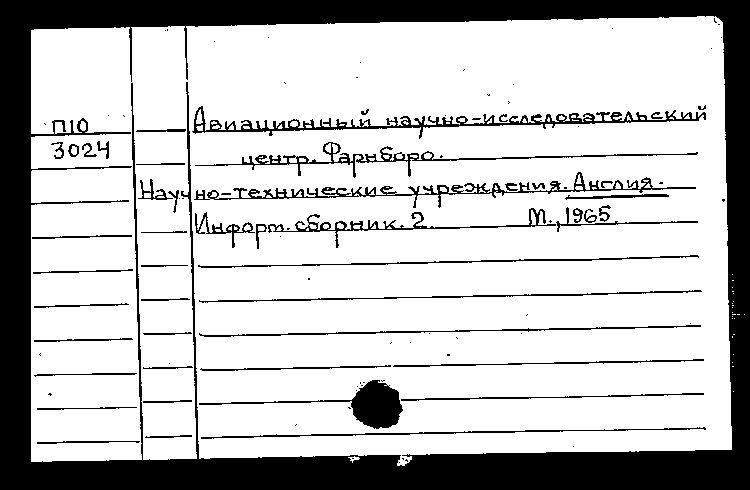 П10
3024
Авиационный научно-исследовательский
центр. Фарнборо.
Научно-технические учреждения. Англия.
Информ. сборник. 2. М., 1965.